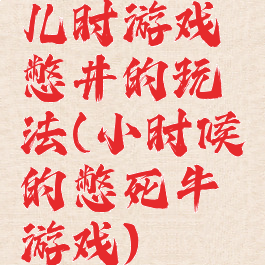 儿时游戏
憋井的玩
法(小时候
的憋死牛
游戏)